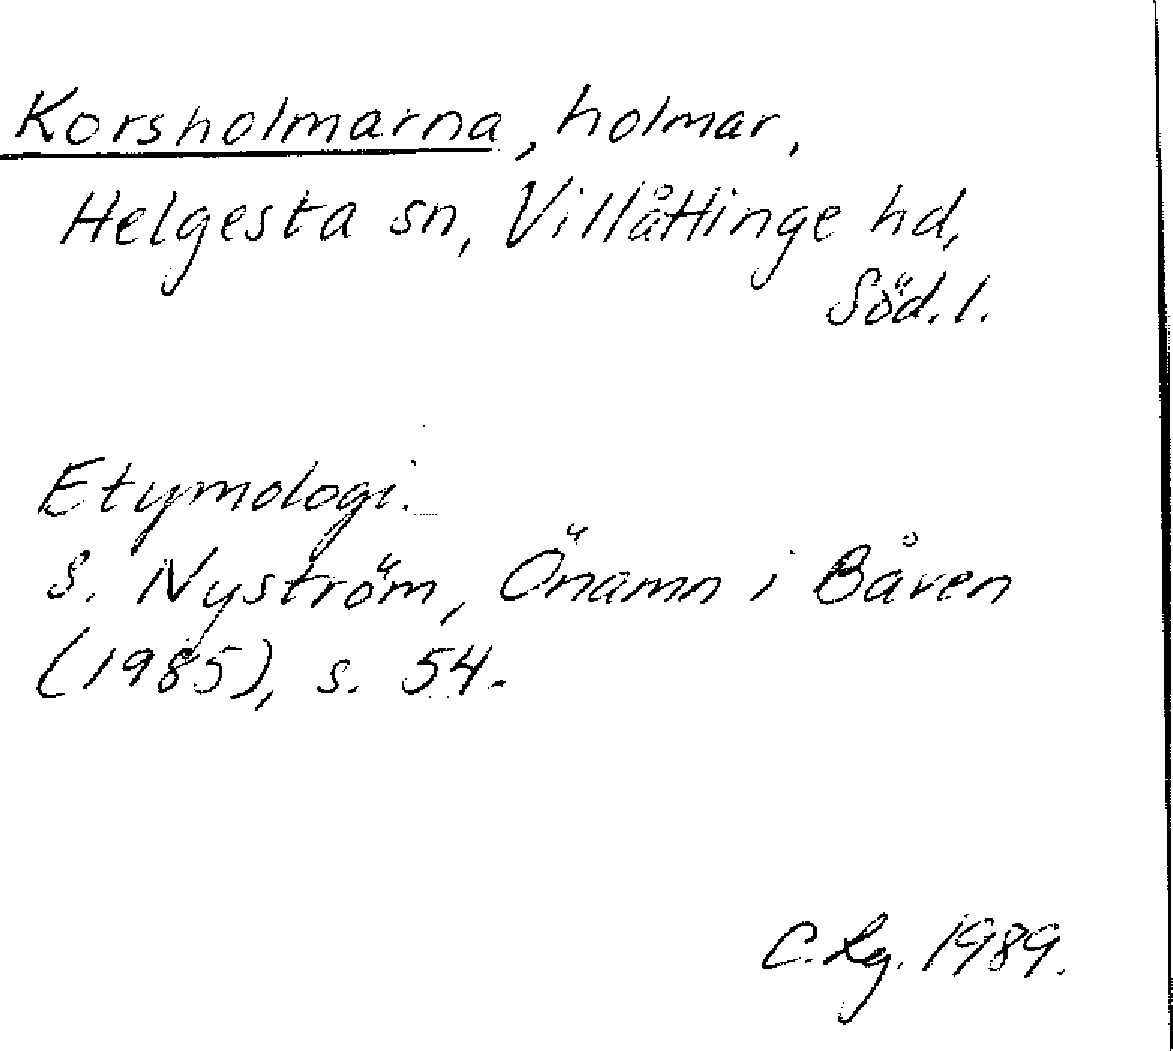 Korsholmarna, holmar,
Helgesta sn, Villåttinge hd,
Söd. l.
Etymologi.
S. Nyström, Önamn i Båven
(1985), s. 54.
C. Lg. 1989.